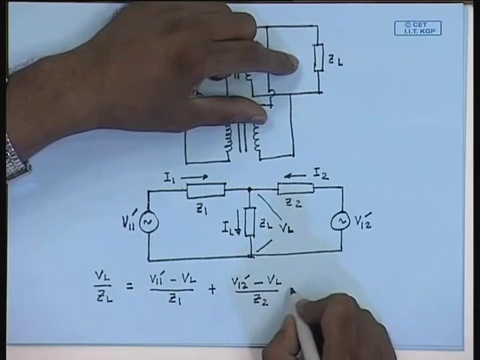 © CET
I.I.T. KGP
ZL
I1 → ← I2
Z1 Z2
V11' IL ↓ ZL VL V12'
VL/ZL = (V11' - VL)/Z1 + (V12' - VL)/Z2